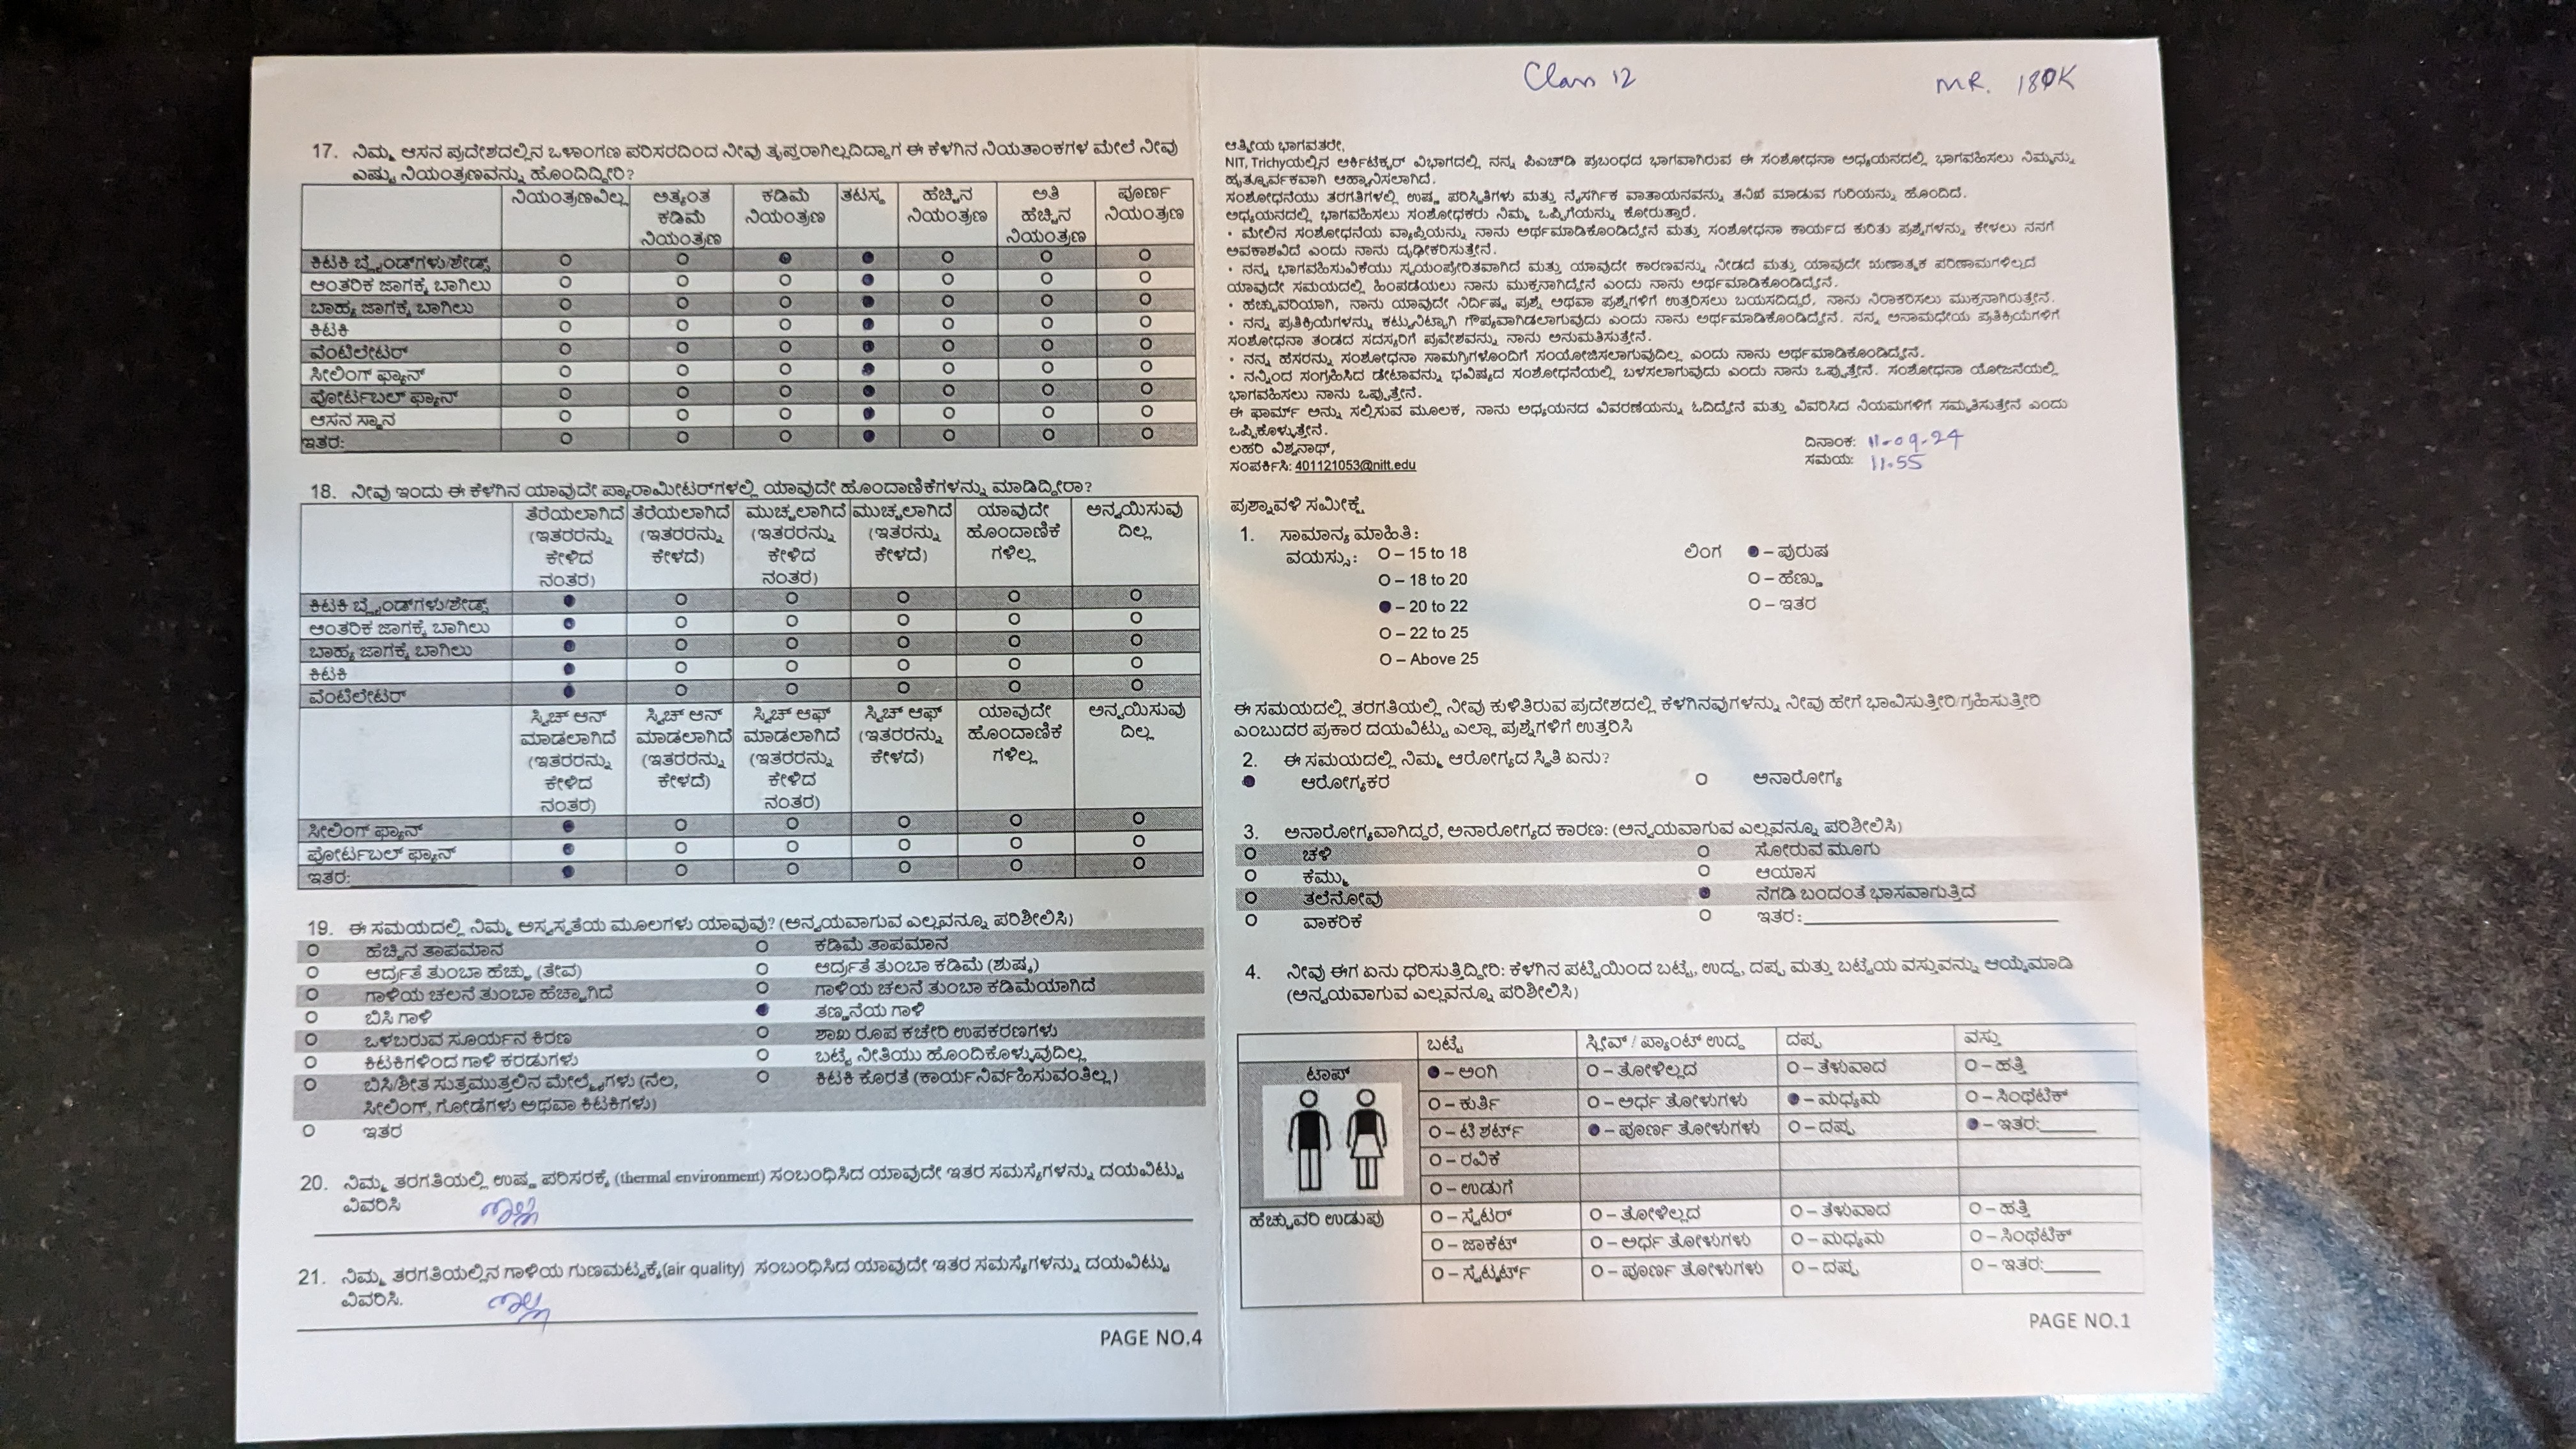 17. ನಿಮ್ಮ ಆಸನ ಪ್ರದೇಶದಲ್ಲಿನ ಒಳಾಂಗಣ ಪರಿಸರದಿಂದ ನೀವು ತೃಪ್ತರಾಗಿಲ್ಲದಿದ್ದಾಗ ಈ ಕೆಳಗಿನ ನಿಯತಾಂಕಗಳ ಮೇಲೆ ನೀವು
ಎಷ್ಟು ನಿಯಂತ್ರಣವನ್ನು ಹೊಂದಿದ್ದೀರಿ?
ನಿಯಂತ್ರಣವಿಲ್ಲ ಅತ್ಯಂತ ಕಡಿಮೆ ನಿಯಂತ್ರಣ ಕಡಿಮೆ ನಿಯಂತ್ರಣ ತಟಸ್ಥ ಹೆಚ್ಚಿನ ನಿಯಂತ್ರಣ ಅತಿ ಹೆಚ್ಚಿನ ನಿಯಂತ್ರಣ ಪೂರ್ಣ ನಿಯಂತ್ರಣ
ಕಿಟಕಿ ಬ್ಲೈಂಡ್‌ಗಳು/ಶೇಡ್ಸ್
ಆಂತರಿಕ ಜಾಗಕ್ಕೆ ಬಾಗಿಲು
ಬಾಹ್ಯ ಜಾಗಕ್ಕೆ ಬಾಗಿಲು
ಕಿಟಕಿ
ವೆಂಟಿಲೇಟರ್
ಸೀಲಿಂಗ್ ಫ್ಯಾನ್
ಪೋರ್ಟಬಲ್ ಫ್ಯಾನ್
ಆಸನ ಸ್ಥಾನ
ಇತರ:
18. ನೀವು ಇಂದು ಈ ಕೆಳಗಿನ ಯಾವುದೇ ಪ್ಯಾರಾಮೀಟರ್‌ಗಳಲ್ಲಿ ಯಾವುದೇ ಹೊಂದಾಣಿಕೆಗಳನ್ನು ಮಾಡಿದ್ದೀರಾ?
ತೆರೆಯಲಾಗಿದೆ (ಇತರರನ್ನು ಕೇಳಿದ ನಂತರ) ತೆರೆಯಲಾಗಿದೆ (ಇತರರನ್ನು ಕೇಳದೆ) ಮುಚ್ಚಲಾಗಿದೆ (ಇತರರನ್ನು ಕೇಳಿದ ನಂತರ) ಮುಚ್ಚಲಾಗಿದೆ (ಇತರರನ್ನು ಕೇಳದೆ) ಯಾವುದೇ ಹೊಂದಾಣಿಕೆ ಗಳಿಲ್ಲ ಅನ್ವಯಿಸುವು ದಿಲ್ಲ
ಕಿಟಕಿ ಬ್ಲೈಂಡ್‌ಗಳು/ಶೇಡ್ಸ್
ಆಂತರಿಕ ಜಾಗಕ್ಕೆ ಬಾಗಿಲು
ಬಾಹ್ಯ ಜಾಗಕ್ಕೆ ಬಾಗಿಲು
ಕಿಟಕಿ
ವೆಂಟಿಲೇಟರ್
ಸ್ವಿಚ್ ಆನ್ ಮಾಡಲಾಗಿದೆ (ಇತರರನ್ನು ಕೇಳಿದ ನಂತರ) ಸ್ವಿಚ್ ಆನ್ ಮಾಡಲಾಗಿದೆ (ಇತರರನ್ನು ಕೇಳದೆ) ಸ್ವಿಚ್ ಆಫ್ ಮಾಡಲಾಗಿದೆ (ಇತರರನ್ನು ಕೇಳಿದ ನಂತರ) ಸ್ವಿಚ್ ಆಫ್ (ಇತರರನ್ನು ಕೇಳದೆ) ಯಾವುದೇ ಹೊಂದಾಣಿಕೆ ಗಳಿಲ್ಲ ಅನ್ವಯಿಸುವು ದಿಲ್ಲ
ಸೀಲಿಂಗ್ ಫ್ಯಾನ್
ಪೋರ್ಟಬಲ್ ಫ್ಯಾನ್
ಇತರ:
19. ಈ ಸಮಯದಲ್ಲಿ ನಿಮ್ಮ ಅಸ್ವಸ್ಥತೆಯ ಮೂಲಗಳು ಯಾವುವು? (ಅನ್ವಯವಾಗುವ ಎಲ್ಲವನ್ನೂ ಪರಿಶೀಲಿಸಿ)
ಹೆಚ್ಚಿನ ತಾಪಮಾನ ಕಡಿಮೆ ತಾಪಮಾನ
ಆರ್ದ್ರತೆ ತುಂಬಾ ಹೆಚ್ಚು (ತೇವ) ಆರ್ದ್ರತೆ ತುಂಬಾ ಕಡಿಮೆ (ಶುಷ್ಕ)
ಗಾಳಿಯ ಚಲನೆ ತುಂಬಾ ಹೆಚ್ಚಾಗಿದೆ ಗಾಳಿಯ ಚಲನೆ ತುಂಬಾ ಕಡಿಮೆಯಾಗಿದೆ
ಬಿಸಿ ಗಾಳಿ ತಣ್ಣನೆಯ ಗಾಳಿ
ಒಳಬರುವ ಸೂರ್ಯನ ಕಿರಣ ಶಾಖ ರೂಪ ಕಚೇರಿ ಉಪಕರಣಗಳು
ಕಿಟಕಿಗಳಿಂದ ಗಾಳಿ ಕರಡುಗಳು ಬಟ್ಟೆ ನೀತಿಯು ಹೊಂದಿಕೊಳ್ಳುವುದಿಲ್ಲ
ಬಿಸಿ/ಶೀತ ಸುತ್ತಮುತ್ತಲಿನ ಮೇಲ್ಮೈಗಳು (ನೆಲ, ಕಿಟಕಿ ಕೊರತೆ (ಕಾರ್ಯನಿರ್ವಹಿಸುವಂತಿಲ್ಲ)
ಸೀಲಿಂಗ್, ಗೋಡೆಗಳು ಅಥವಾ ಕಿಟಕಿಗಳು)
ಇತರ
20. ನಿಮ್ಮ ತರಗತಿಯಲ್ಲಿ ಉಷ್ಣ ಪರಿಸರಕ್ಕೆ (thermal environment) ಸಂಬಂಧಿಸಿದ ಯಾವುದೇ ಇತರ ಸಮಸ್ಯೆಗಳನ್ನು ದಯವಿಟ್ಟು
ವಿವರಿಸಿ ಇಲ್ಲ
21. ನಿಮ್ಮ ತರಗತಿಯಲ್ಲಿನ ಗಾಳಿಯ ಗುಣಮಟ್ಟಕ್ಕೆ(air quality) ಸಂಬಂಧಿಸಿದ ಯಾವುದೇ ಇತರ ಸಮಸ್ಯೆಗಳನ್ನು ದಯವಿಟ್ಟು
ವಿವರಿಸಿ. ಇಲ್ಲ
PAGE NO.4
Class 12 MR.
ಆತ್ಮೀಯ ಭಾಗವತರೇ,
NIT, Trichyಯಲ್ಲಿನ ಆರ್ಕಿಟೆಕ್ಚರ್ ವಿಭಾಗದಲ್ಲಿ ನನ್ನ ಪಿಎಚ್‌ಡಿ ಪ್ರಬಂಧದ ಭಾಗವಾಗಿರುವ ಈ ಸಂಶೋಧನಾ ಅಧ್ಯಯನದಲ್ಲಿ ಭಾಗವಹಿಸಲು ನಿಮ್ಮನ್ನು
ಹೃತ್ಪೂರ್ವಕವಾಗಿ ಆಹ್ವಾನಿಸಲಾಗಿದೆ.
ಸಂಶೋಧನೆಯು ತರಗತಿಗಳಲ್ಲಿ ಉಷ್ಣ ಪರಿಸ್ಥಿತಿಗಳು ಮತ್ತು ನೈಸರ್ಗಿಕ ವಾತಾಯನವನ್ನು ತನಿಖೆ ಮಾಡುವ ಗುರಿಯನ್ನು ಹೊಂದಿದೆ.
ಅಧ್ಯಯನದಲ್ಲಿ ಭಾಗವಹಿಸಲು ಸಂಶೋಧಕರು ನಿಮ್ಮ ಒಪ್ಪಿಗೆಯನ್ನು ಕೋರುತ್ತಾರೆ.
• ಮೇಲಿನ ಸಂಶೋಧನೆಯ ವ್ಯಾಪ್ತಿಯನ್ನು ನಾನು ಅರ್ಥಮಾಡಿಕೊಂಡಿದ್ದೇನೆ ಮತ್ತು ಸಂಶೋಧನಾ ಕಾರ್ಯದ ಕುರಿತು ಪ್ರಶ್ನೆಗಳನ್ನು ಕೇಳಲು ನನಗೆ
ಅವಕಾಶವಿದೆ ಎಂದು ನಾನು ದೃಢೀಕರಿಸುತ್ತೇನೆ.
• ನನ್ನ ಭಾಗವಹಿಸುವಿಕೆಯು ಸ್ವಯಂಪ್ರೇರಿತವಾಗಿದೆ ಮತ್ತು ಯಾವುದೇ ಕಾರಣವನ್ನು ನೀಡದೆ ಮತ್ತು ಯಾವುದೇ ಋಣಾತ್ಮಕ ಪರಿಣಾಮಗಳಿಲ್ಲದೆ
ಯಾವುದೇ ಸಮಯದಲ್ಲಿ ಹಿಂಪಡೆಯಲು ನಾನು ಮುಕ್ತನಾಗಿದ್ದೇನೆ ಎಂದು ನಾನು ಅರ್ಥಮಾಡಿಕೊಂಡಿದ್ದೇನೆ.
• ಹೆಚ್ಚುವರಿಯಾಗಿ, ನಾನು ಯಾವುದೇ ನಿರ್ದಿಷ್ಟ ಪ್ರಶ್ನೆ ಅಥವಾ ಪ್ರಶ್ನೆಗಳಿಗೆ ಉತ್ತರಿಸಲು ಬಯಸದಿದ್ದರೆ, ನಾನು ನಿರಾಕರಿಸಲು ಮುಕ್ತನಾಗಿರುತ್ತೇನೆ.
• ನನ್ನ ಪ್ರತಿಕ್ರಿಯೆಗಳನ್ನು ಕಟ್ಟುನಿಟ್ಟಾಗಿ ಗೌಪ್ಯವಾಗಿಡಲಾಗುವುದು ಎಂದು ನಾನು ಅರ್ಥಮಾಡಿಕೊಂಡಿದ್ದೇನೆ. ನನ್ನ ಅನಾಮಧೇಯ ಪ್ರತಿಕ್ರಿಯೆಗಳಿಗೆ
ಸಂಶೋಧನಾ ತಂಡದ ಸದಸ್ಯರಿಗೆ ಪ್ರವೇಶವನ್ನು ನಾನು ಅನುಮತಿಸುತ್ತೇನೆ.
• ನನ್ನ ಹೆಸರನ್ನು ಸಂಶೋಧನಾ ಸಾಮಗ್ರಿಗಳೊಂದಿಗೆ ಸಂಯೋಜಿಸಲಾಗುವುದಿಲ್ಲ ಎಂದು ನಾನು ಅರ್ಥಮಾಡಿಕೊಂಡಿದ್ದೇನೆ.
• ನನ್ನಿಂದ ಸಂಗ್ರಹಿಸಿದ ಡೇಟಾವನ್ನು ಭವಿಷ್ಯದ ಸಂಶೋಧನೆಯಲ್ಲಿ ಬಳಸಲಾಗುವುದು ಎಂದು ನಾನು ಒಪ್ಪುತ್ತೇನೆ. ಸಂಶೋಧನಾ ಯೋಜನೆಯಲ್ಲಿ
ಭಾಗವಹಿಸಲು ನಾನು ಒಪ್ಪುತ್ತೇನೆ.
ಈ ಫಾರ್ಮ್ ಅನ್ನು ಸಲ್ಲಿಸುವ ಮೂಲಕ, ನಾನು ಅಧ್ಯಯನದ ವಿವರಣೆಯನ್ನು ಓದಿದ್ದೇನೆ ಮತ್ತು ವಿವರಿಸಿದ ನಿಯಮಗಳಿಗೆ ಸಮ್ಮತಿಸುತ್ತೇನೆ ಎಂದು
ಒಪ್ಪಿಕೊಳ್ಳುತ್ತೇನೆ.
ಲಹರಿ ವಿಶ್ವನಾಥ್, ದಿನಾಂಕ: 11-09-24
ಸಂಪರ್ಕಿಸಿ: 401121053@nitt.edu ಸಮಯ: 11.55
ಪ್ರಶ್ನಾವಳಿ ಸಮೀಕ್ಷೆ
1. ಸಾಮಾನ್ಯ ಮಾಹಿತಿ:
ವಯಸ್ಸು: O – 15 to 18 ಲಿಂಗ – ಪುರುಷ
O – 18 to 20 O – ಹೆಣ್ಣು
– 20 to 22 O – ಇತರ
O – 22 to 25
O – Above 25
ಈ ಸಮಯದಲ್ಲಿ ತರಗತಿಯಲ್ಲಿ ನೀವು ಕುಳಿತಿರುವ ಪ್ರದೇಶದಲ್ಲಿ ಕೆಳಗಿನವುಗಳನ್ನು ನೀವು ಹೇಗೆ ಭಾವಿಸುತ್ತೀರಿ/ಗ್ರಹಿಸುತ್ತೀರಿ
ಎಂಬುದರ ಪ್ರಕಾರ ದಯವಿಟ್ಟು ಎಲ್ಲಾ ಪ್ರಶ್ನೆಗಳಿಗೆ ಉತ್ತರಿಸಿ
2. ಈ ಸಮಯದಲ್ಲಿ ನಿಮ್ಮ ಆರೋಗ್ಯದ ಸ್ಥಿತಿ ಏನು?
ಆರೋಗ್ಯಕರ O ಅನಾರೋಗ್ಯ
3. ಅನಾರೋಗ್ಯವಾಗಿದ್ದರೆ, ಅನಾರೋಗ್ಯದ ಕಾರಣ: (ಅನ್ವಯವಾಗುವ ಎಲ್ಲವನ್ನೂ ಪರಿಶೀಲಿಸಿ)
ಚಳಿ ಸೋರುವ ಮೂಗು
ಕೆಮ್ಮು ಆಯಾಸ
ತಲೆನೋವು ನೆಗಡಿ ಬಂದಂತೆ ಭಾಸವಾಗುತ್ತಿದೆ
ವಾಕರಿಕೆ ಇತರ:
4. ನೀವು ಈಗ ಏನು ಧರಿಸುತ್ತಿದ್ದೀರಿ: ಕೆಳಗಿನ ಪಟ್ಟಿಯಿಂದ ಬಟ್ಟೆ, ಉದ್ದ, ದಪ್ಪ ಮತ್ತು ಬಟ್ಟೆಯ ವಸ್ತುವನ್ನು ಆಯ್ಕೆಮಾಡಿ
(ಅನ್ವಯವಾಗುವ ಎಲ್ಲವನ್ನೂ ಪರಿಶೀಲಿಸಿ)
ಬಟ್ಟೆ ಸ್ಲೀವ್ / ಪ್ಯಾಂಟ್ ಉದ್ದ ದಪ್ಪ ವಸ್ತು
ಟಾಪ್ – ಅಂಗಿ O – ತೋಳಿಲ್ಲದ O – ತೆಳುವಾದ O – ಹತ್ತಿ
O – ಕುರ್ತಿ O – ಅರ್ಧ ತೋಳುಗಳು – ಮಧ್ಯಮ O – ಸಿಂಥೆಟಿಕ್
O – ಟಿ ಶರ್ಟ್ – ಪೂರ್ಣ ತೋಳುಗಳು O – ದಪ್ಪ – ಇತರ:
O – ರವಿಕೆ
O – ಉಡುಗೆ
ಹೆಚ್ಚುವರಿ ಉಡುಪು O – ಸ್ವೆಟರ್ O – ತೋಳಿಲ್ಲದ O – ತೆಳುವಾದ O – ಹತ್ತಿ
O – ಜಾಕೆಟ್ O – ಅರ್ಧ ತೋಳುಗಳು O – ಮಧ್ಯಮ O – ಸಿಂಥೆಟಿಕ್
O – ಸ್ವೆಟ್ಶರ್ಟ್ O – ಪೂರ್ಣ ತೋಳುಗಳು O – ದಪ್ಪ O – ಇತರ:
PAGE NO.1